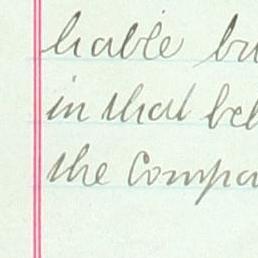 liable bu
in that beh
the Compa